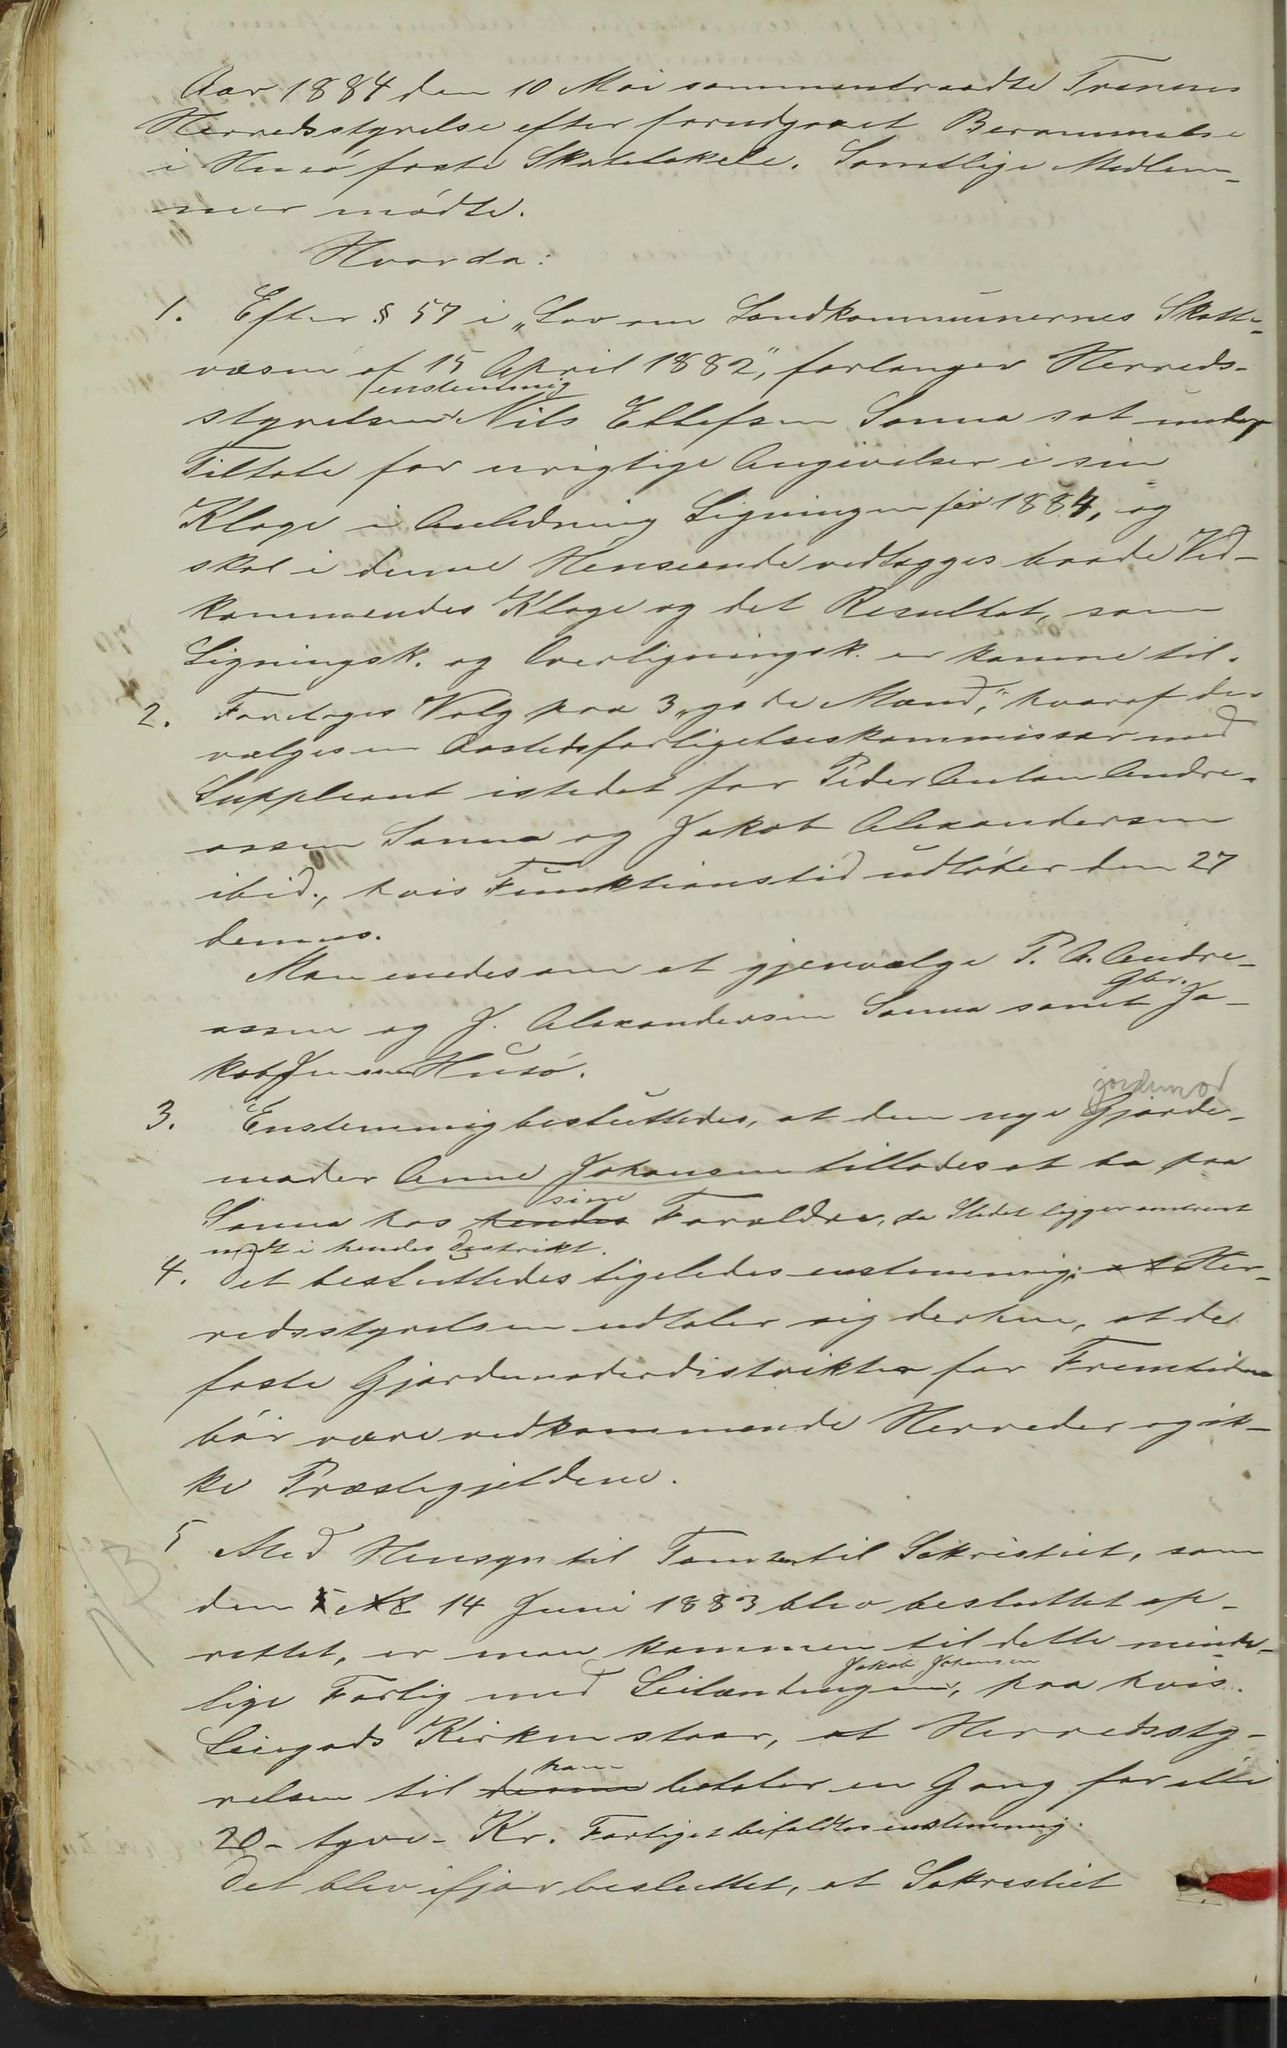 Aar 1884 den 10 Mai sammentraadte Trænens
Herredsstyrelse efter forudgaaet Berammelse
i Husø faste Skolelokale. Samtlige Medlem-
mer mødte.
Hvorda:
1. Efter § 57 i „Lov om Landkommunernes Skatte-
væsen af 15 April 1882", forlanger Herreds-
enstemmig
styrelsen Nils Ellefsen Sanna sat under
Tiltale for urigtige Angivelser i sin
Klage i Anledning Ligningen for 1884, og
skal i denne Henseende vedlægges baade Ved-
kommendes Klage og det Resultat, som
Ligningsk. og Overligningsk. er komne til.
2. Foretoges Valg paa 3 „gode Mænd", hvoraf der
vælges en Aastedsforligelseskommissær med
Suppleant istedet for Peder Anton Andre-
assen Sanna og Jakob Alexandersen
ibid., hvis Funktionstid udløber den 27
dennes.
Man enedes om at gjenvælge P. A. Andre-
assen og J. Alexandersen Sanna samt Gbr. Ja-
kob Jensen Husø.
jordmor
3. Enstemmig besluttedes, at den nye Gjorde-
moder Anne Johansen tillodes at bo paa
Sanna hos hendes sine Forældre, da Stedet ligger omtrent
midt i hendes Distrikt.
4. Det besluttedes ligeledes enstemmig: at Her-
redsstyrelsen udtaler sig derhen, at de
faste Gjordemoderdistrikter for Fremtiden
bør være vedkommende Herreder og ik-
ke Præstegjeldene.
NB
5 Med Hensyn til Tomten til Sakristiet, som
den 14 Juni 1883 blev besluttet op-
rettet, er man kommen til dette minde-
Jakob Johansen
lige Forlig med Leilændingen, paa hvis
Leiegods Kirken staar, at Herredssty-
ham
relsen til denne betaler en Gang for alle
20 - tyve - Kr. Forliget bifaldtes enstemmig.
Det blev ifjor besluttet, at Sakristiet